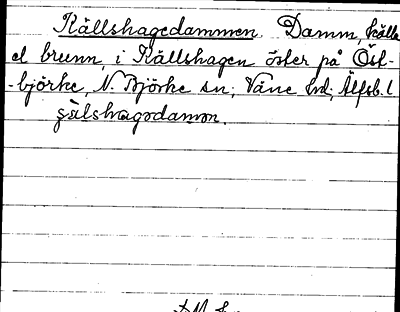 Källshagedammen. Damm, källa
el brunn, i Källshagen öster på Öst-
-björke, N. Björke sn; Väne hd; Älfsb. l